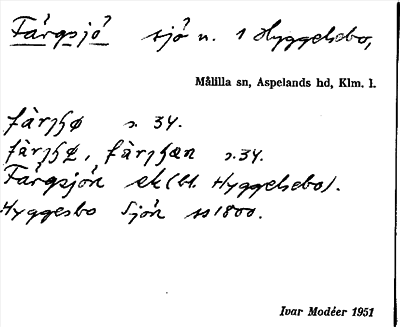 Färgsjö sjö n. 1 Hyggelsebo,
Målilla sn, Aspelands hd, Klm. l.
fàrʃɧø s. 34.
fàrʃɧø, fàrʃɧæn s. 34.
Färgsjön ek (bl. Hyggelsebo).
Hyggesbo Sjön ss 1800.
Ivar Modéer 1951